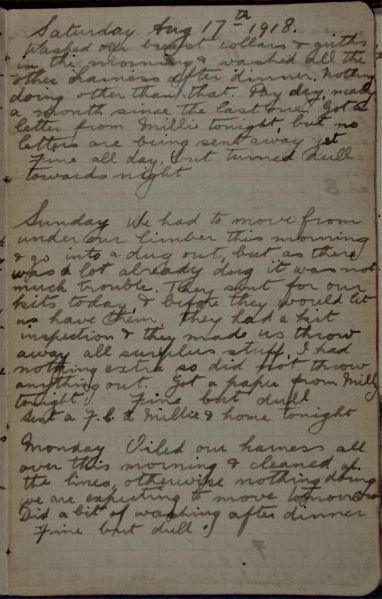 Saturday Aug 17th 1918.
Washed our breast collars & girths
in the morning & washed all the
other harness after dinner. Nothing
doing other than that. Pay day, nearly
a month since the last one. Got a
letter from Millie tonight, but no
letters are being sent away yet
Fine all day, but turned dull
towards night
Sunday We had to move from
under our limber this morning
& go into a dug out, but as there
was a lot already dug it was not
much trouble. They sent for our
kits today, & before they would let
us have them they had a kit
inspection & they made us throw
away all surplus stuff. I had
nothing extra so did not throw
anything out. Got a paper from Milly
tonight. Fine but dull
Sent a F.C. to Millie & home tonight
Monday Oiled our harness all
over this morning & cleaned up
the lines, otherwise nothing doing
we are expecting to move tomorrow
Did a bit of washing after dinner
Fine but dull.